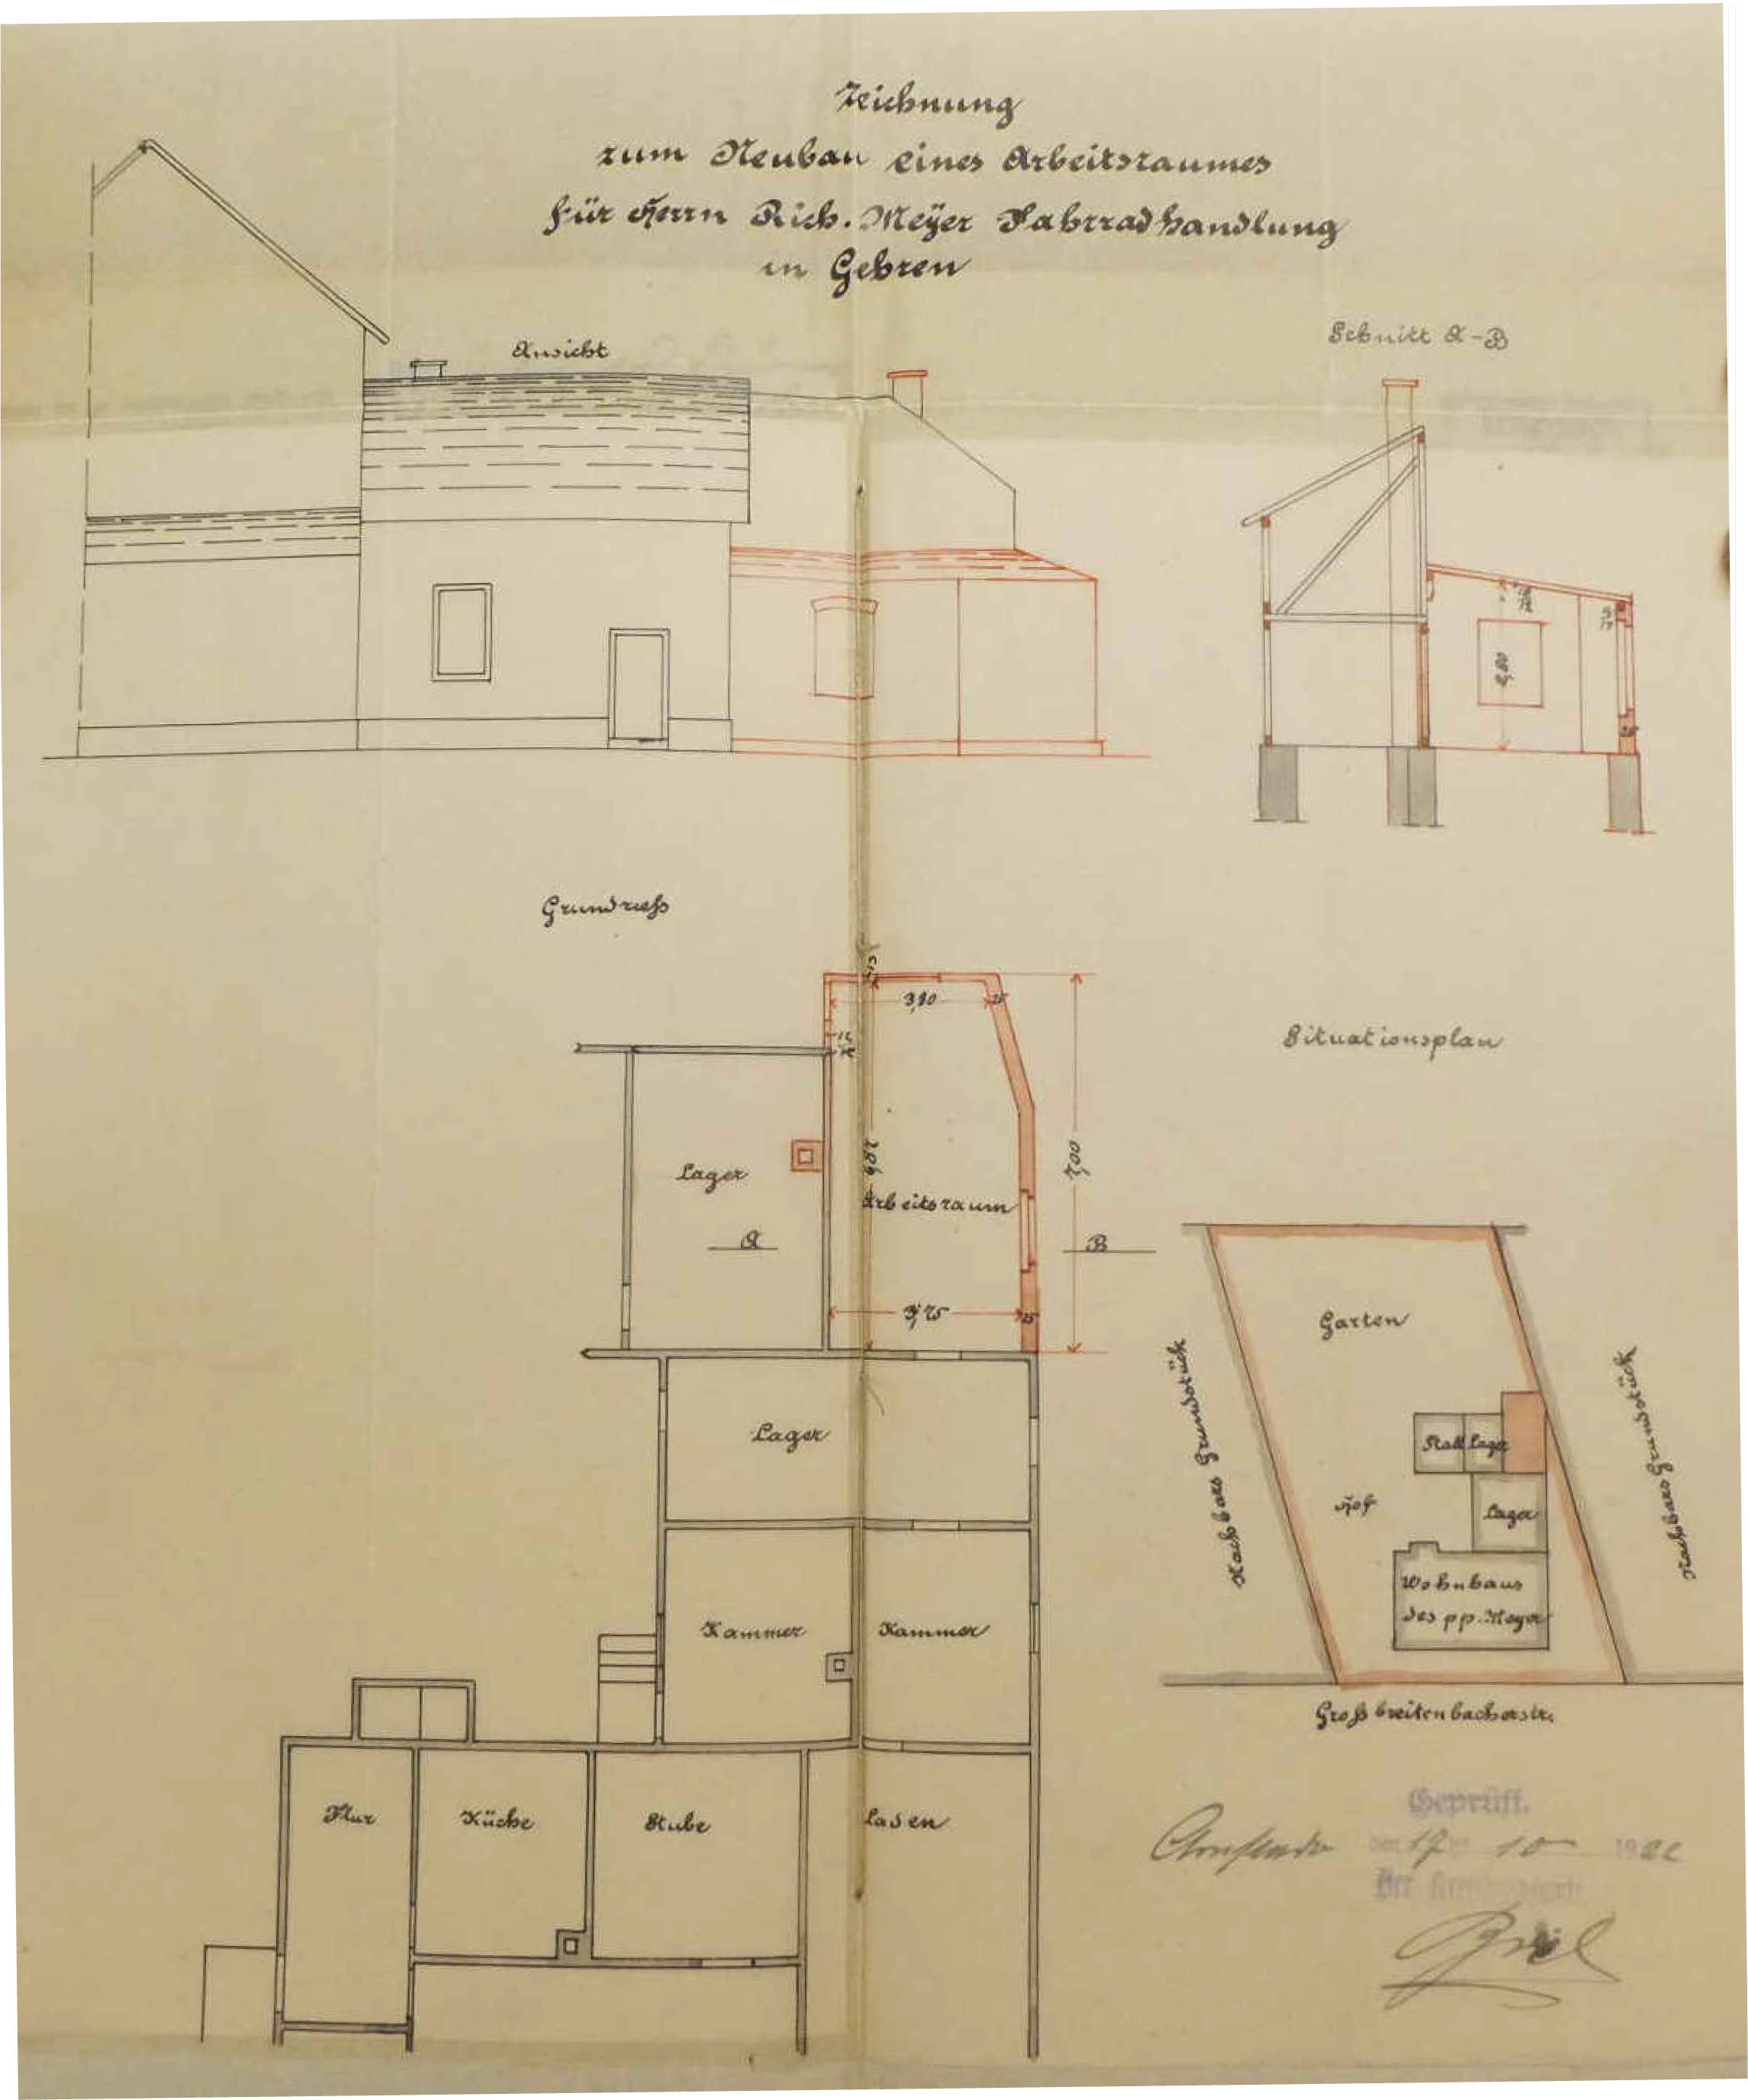 Zeichnung
zum Neubau eines Arbeitsraumes
für Herrn Rich. Meÿer Fahrradhandlung
in Gehren
Ansicht
Schnitt A-B
2,80
Grundriss
3,10
25
Lager
Arbeitsraum
7,00
A
B
3,75
25
Lager
Kammer
Kammer
Flur
Küche
Stube
Laden
Situationsplan
Garten
Nachbars Grundstück
Nachbars Grundstück
Stall
Lager
Hof
Lager
Wohnhaus
des pp. Meyer
Großbreitenbacherstr.
Geprüft.
den 17 ten 10